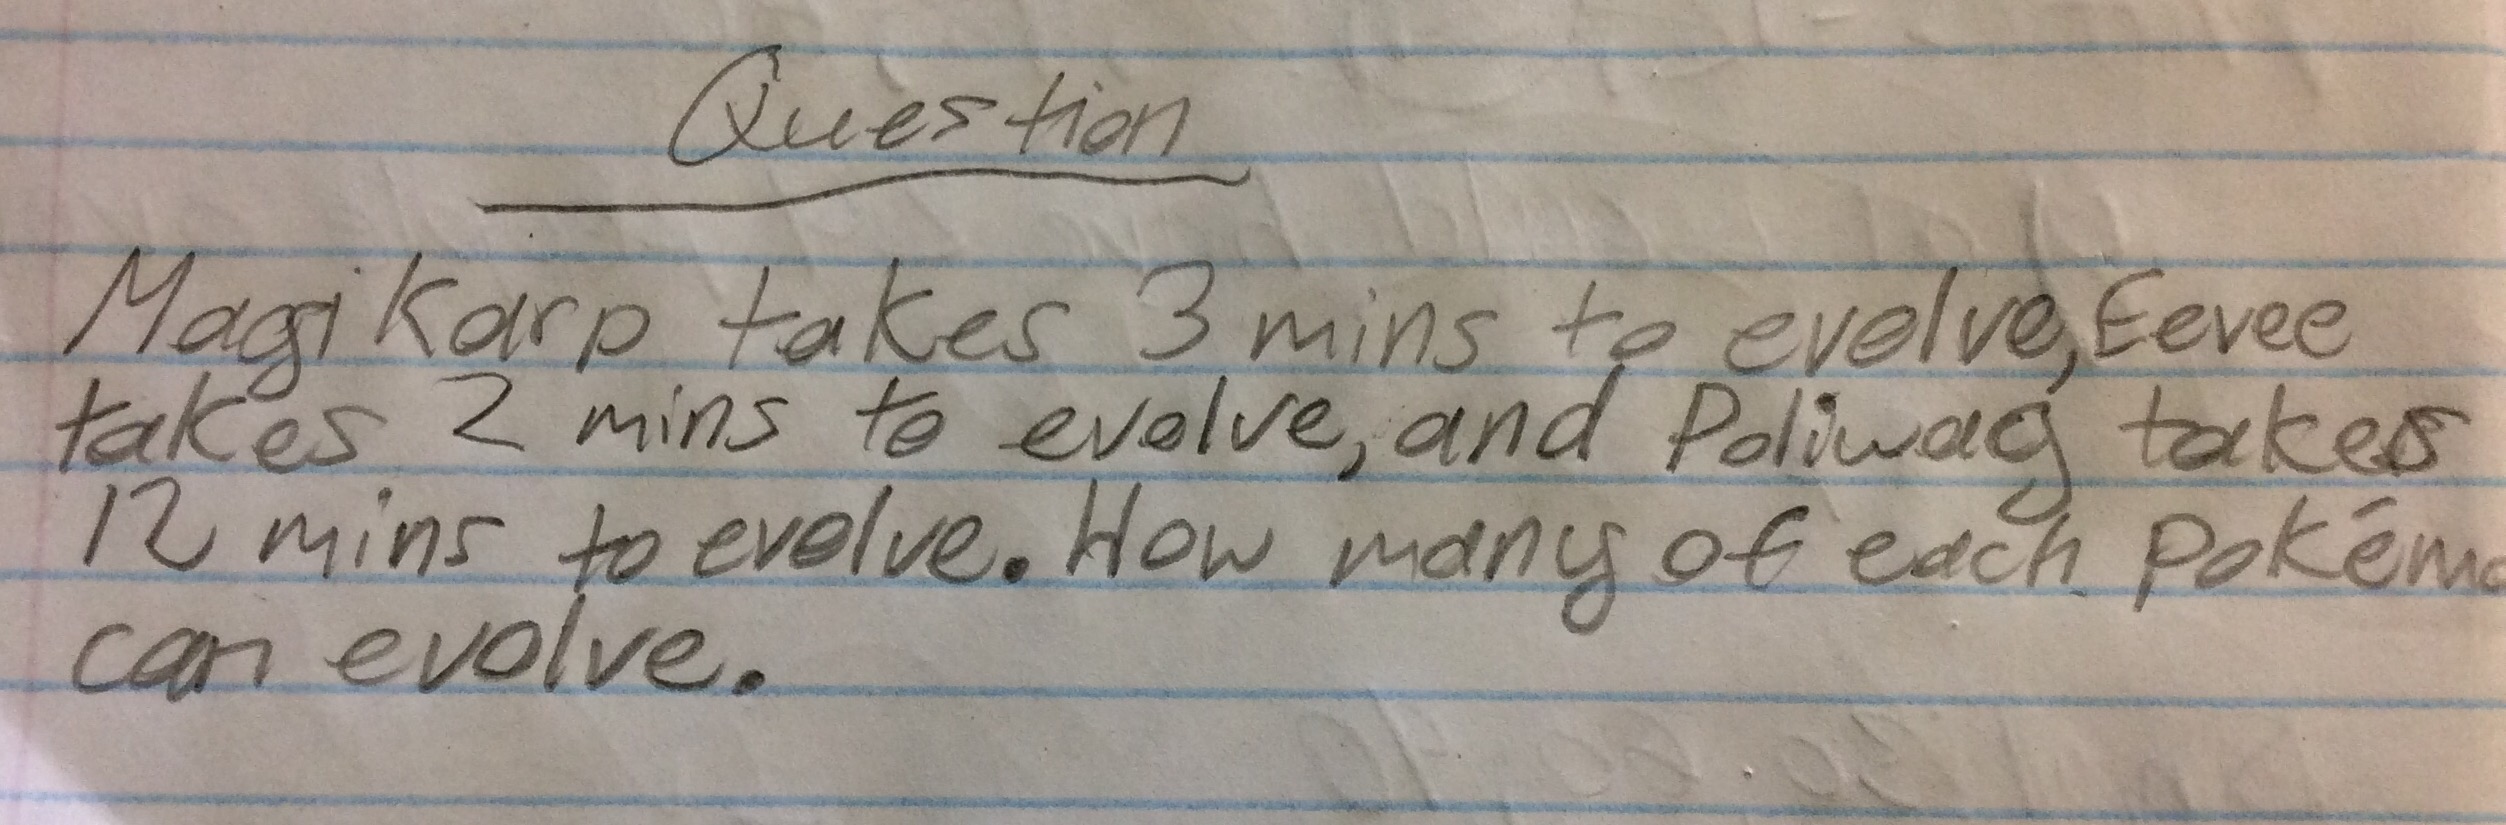 Question
Magikarp takes 3 mins to evolve, Eevee
takes 2 mins to evolve, and Poliwag takes
12 mins to evolve. How many of each Pokémo
can evolve.